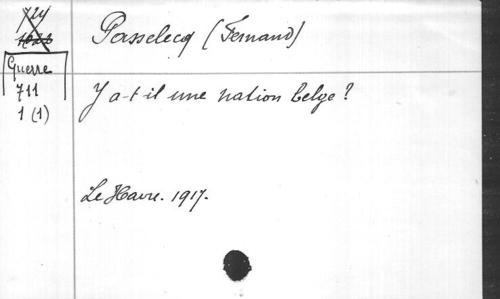 724
Passelecq (Fernand)
Guerre
711
1 (1)
Y a-t-il une nation belge?
Le Havre. 1917.